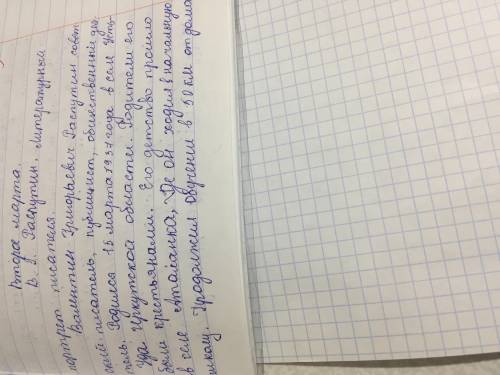 Второе марта.
В. Г. Распутин, литературный
портрет писателя.
Валентин Григорьевич Распутин совет
ский писатель, публицист, общественный дея-
тель. Родился 15 марта 1937 года в селе Усть-
Уда Иркутской области. Родители его
были крестьянами. Его детство прошло
в селе Аталанка, где он ходил в начальную
школу. Продолжил обучении в 50 км от дома